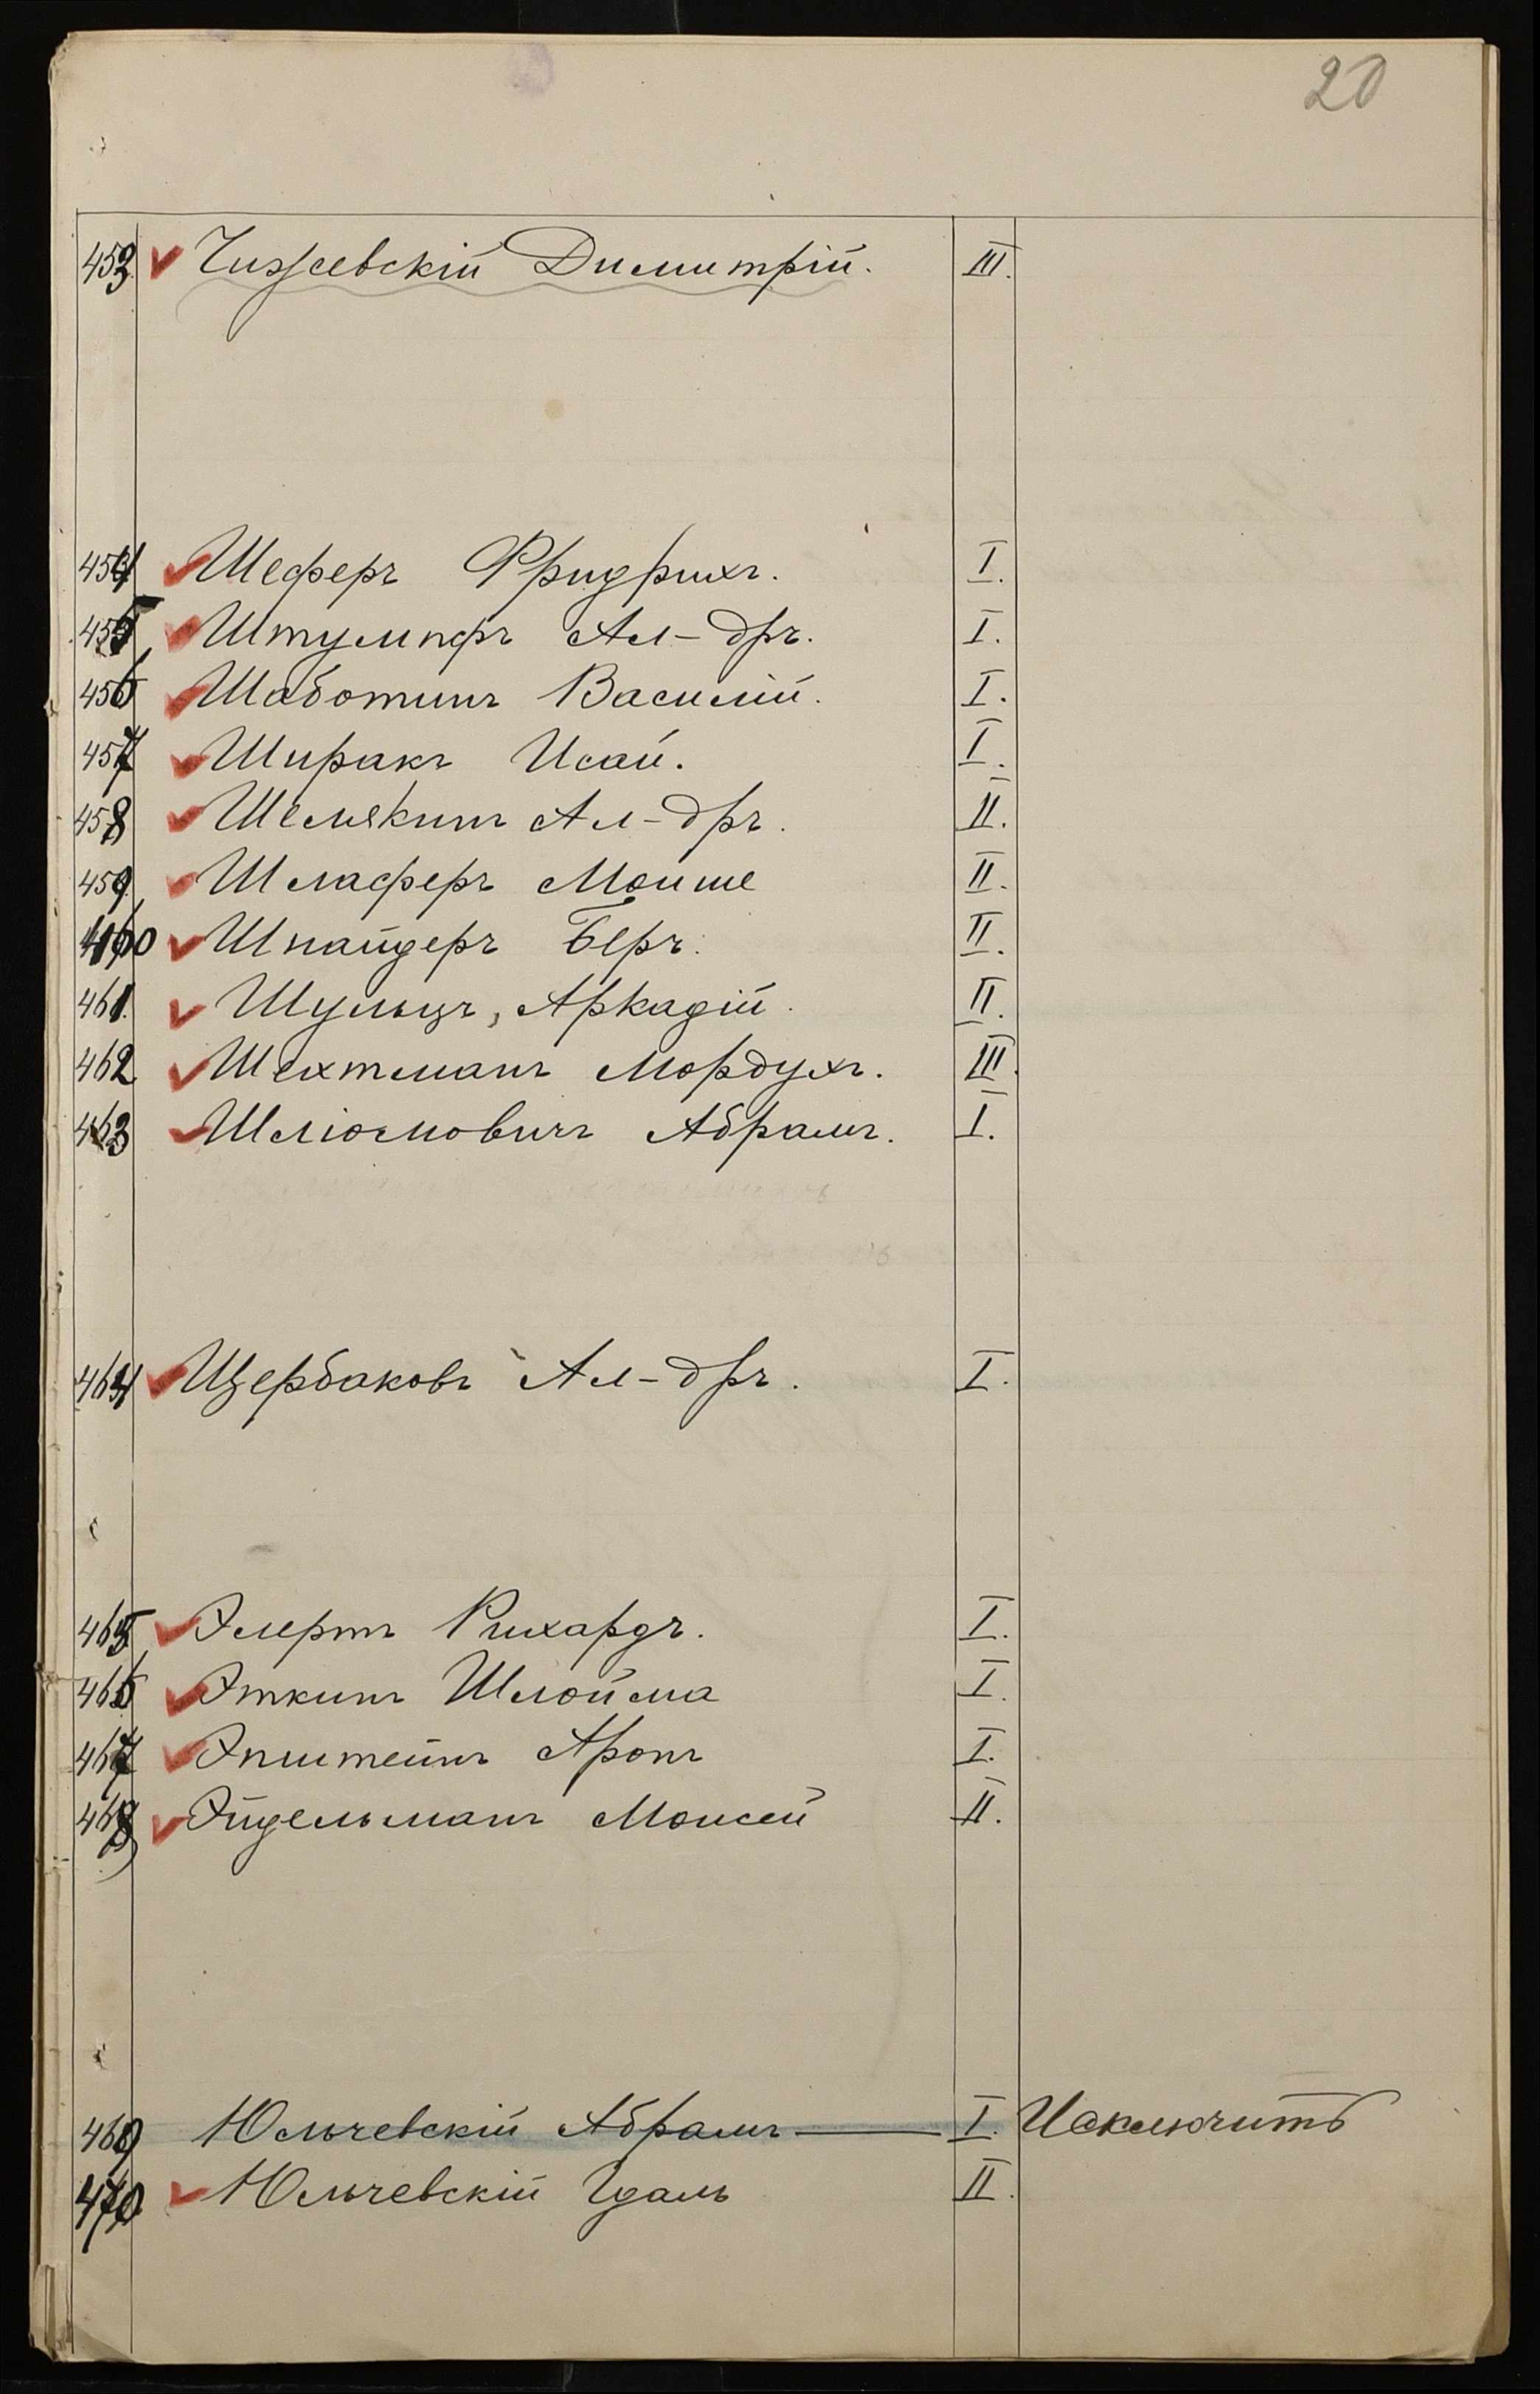 20
453 Чижевскій Димитрій. III.
454 Шеферъ Фридрихъ. I.
455 Штумпфъ Ал-дръ. I.
456 Шаботинъ Василій. I.
457 Ширакъ Исай. I.
458 Шемякинъ Ал-дръ. II.
459. Шлаферъ Моише II.
460 Шнайдеръ Беръ. II.
461. Шульцъ, Аркадій. II.
462 Шехтманъ Мордухъ. III.
463 Шліомовичъ Абрамъ. I.
464 Щербаковъ Ал-дръ. I.
465 Элертъ Рихардъ. I.
466 Эткинъ Шлойма I.
467 Эпштейнъ Аронъ I.
468 Эйдельманъ Моисей II.
469 Юльчевскій Абрамъ — I. Исключить
470 Юльчевскій Гдаль II.